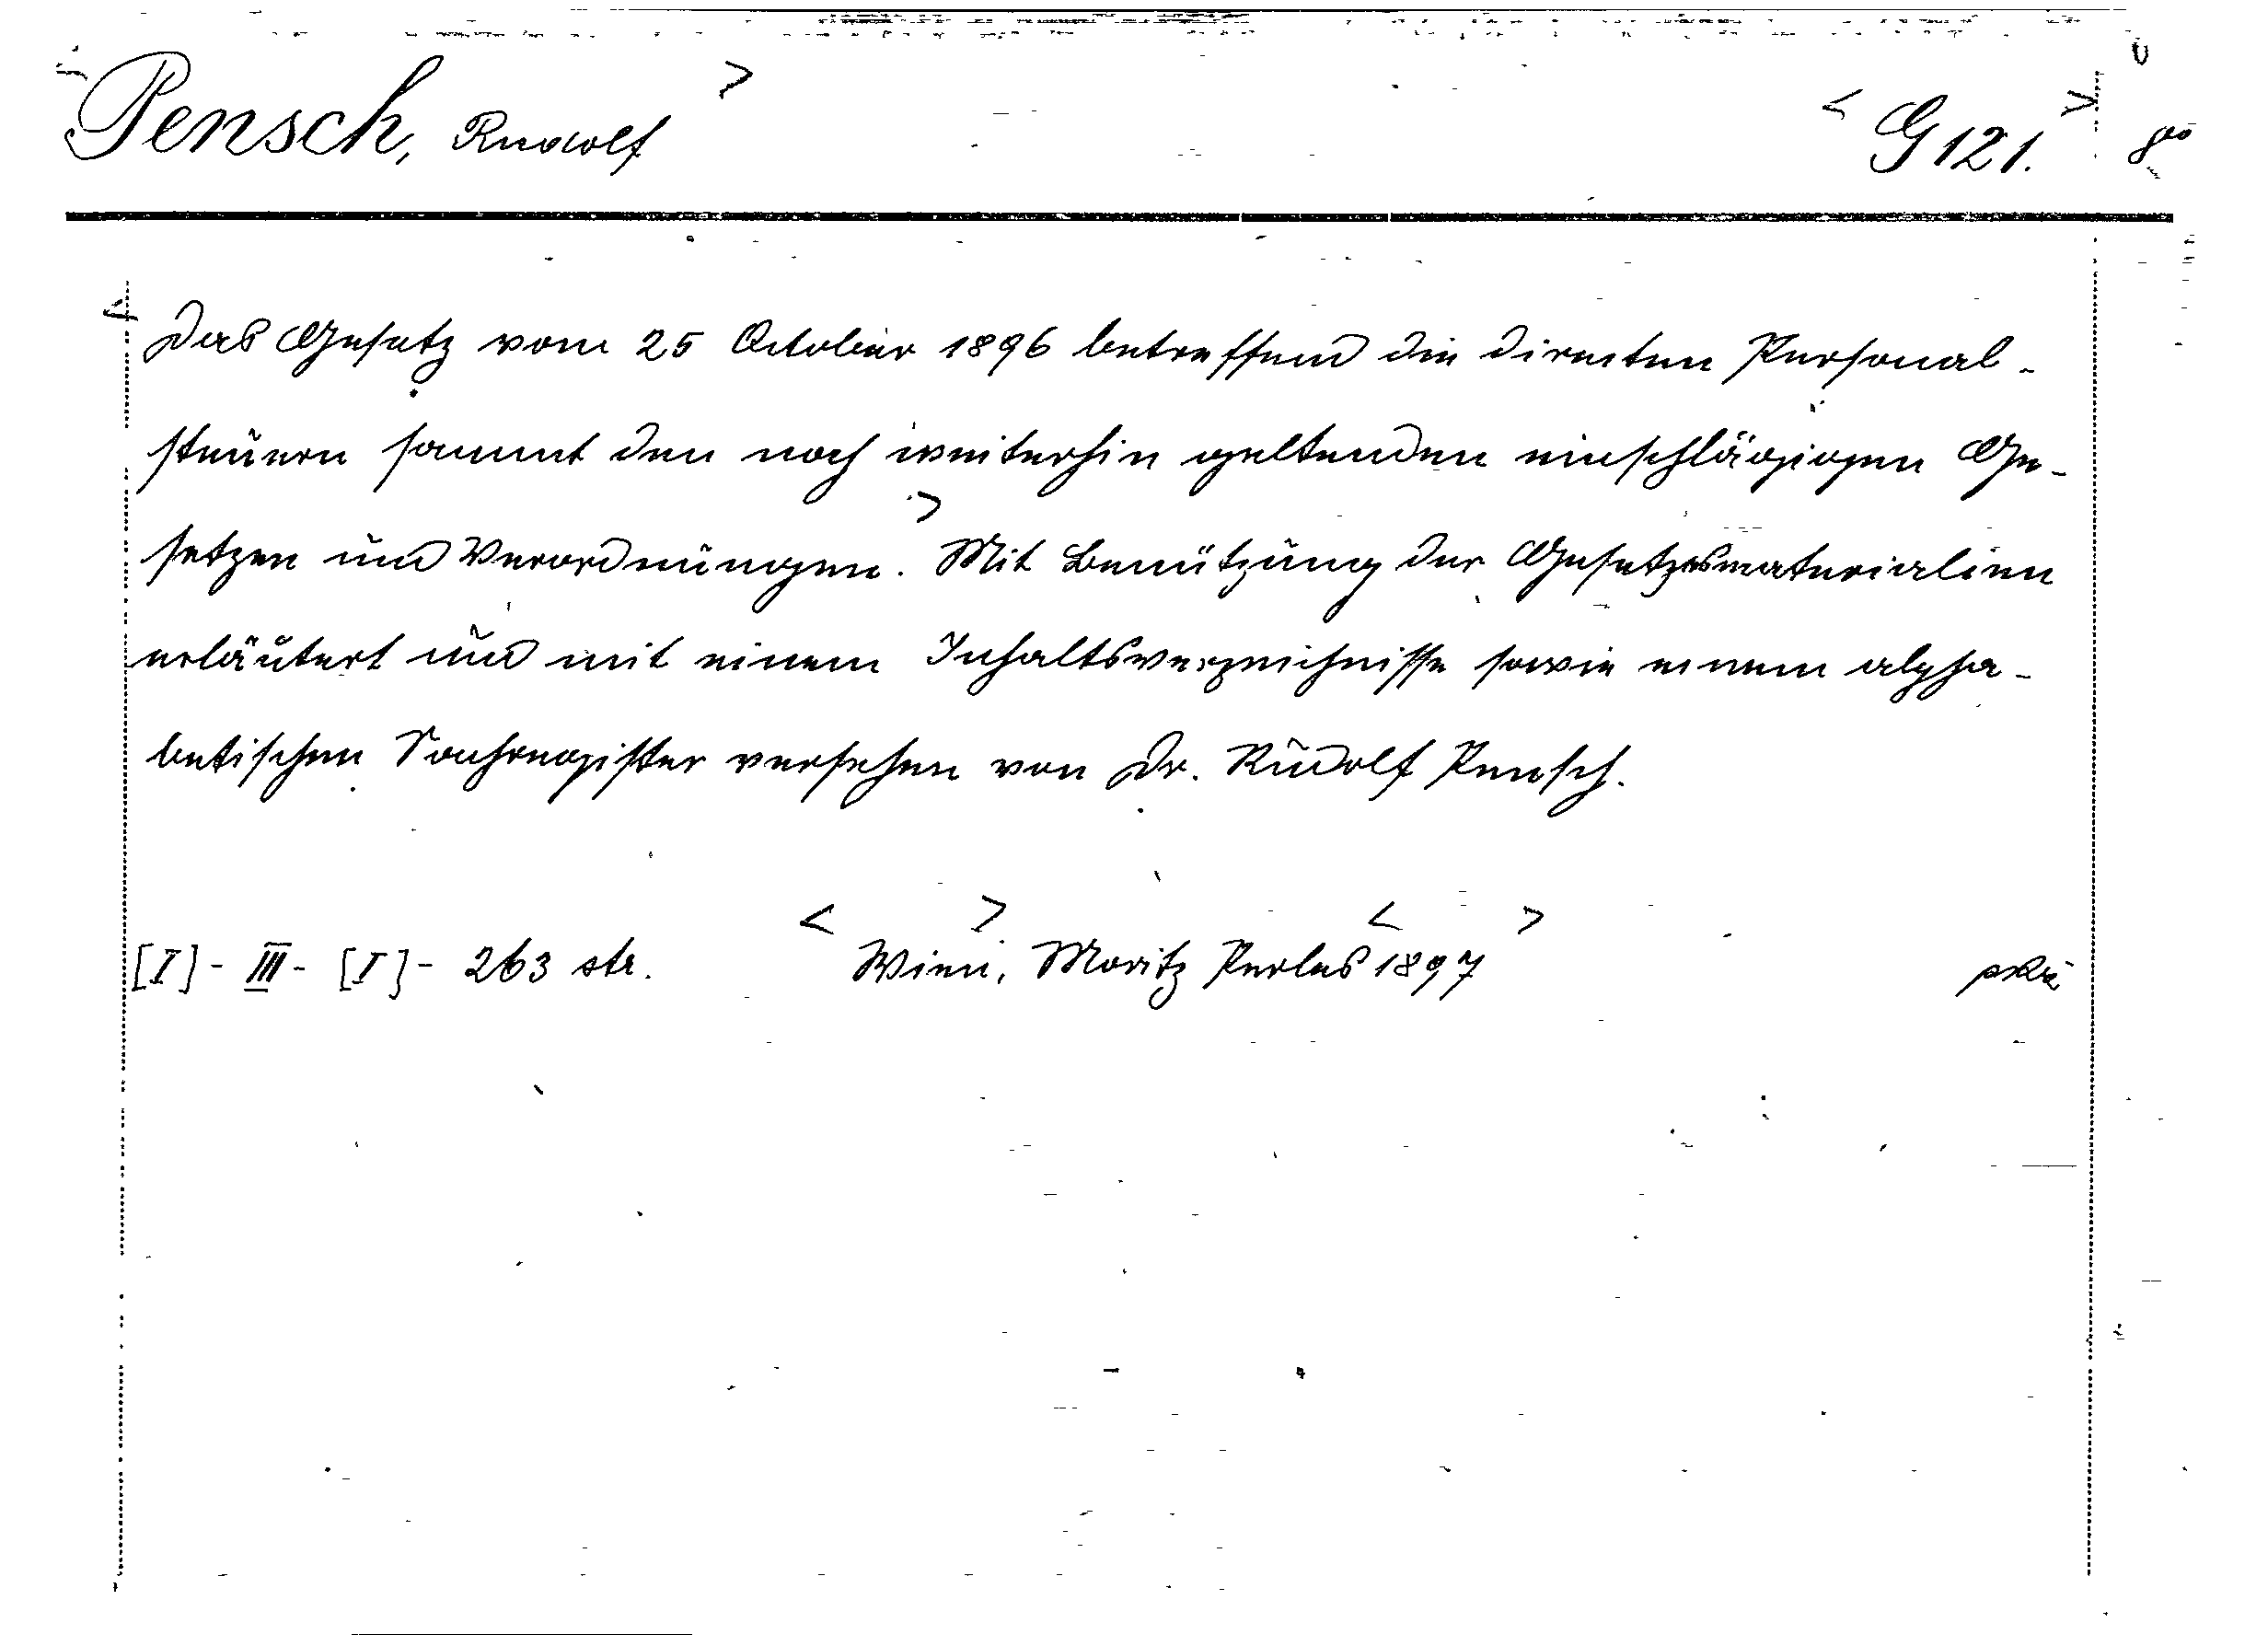 Pensch, Rudolf > < G 121. > 8°
< Das Gesetz vom 25 October 1896 betreffend die directen Personal-
steuern sammt den noch weiterhin geltenden einschlägigen Ge-
setzen und Verordnungen.> Mit Benützung der Gesetzesmaterialien
erläutert und mit einem Inhaltsverzeichnisse sowie einem alpha-
betischen Sachregister versehen von Dr. Rudolf Pensch.
[I] - III - [I] - 263 str. < Wien, > Moritz Perles < 1897 >